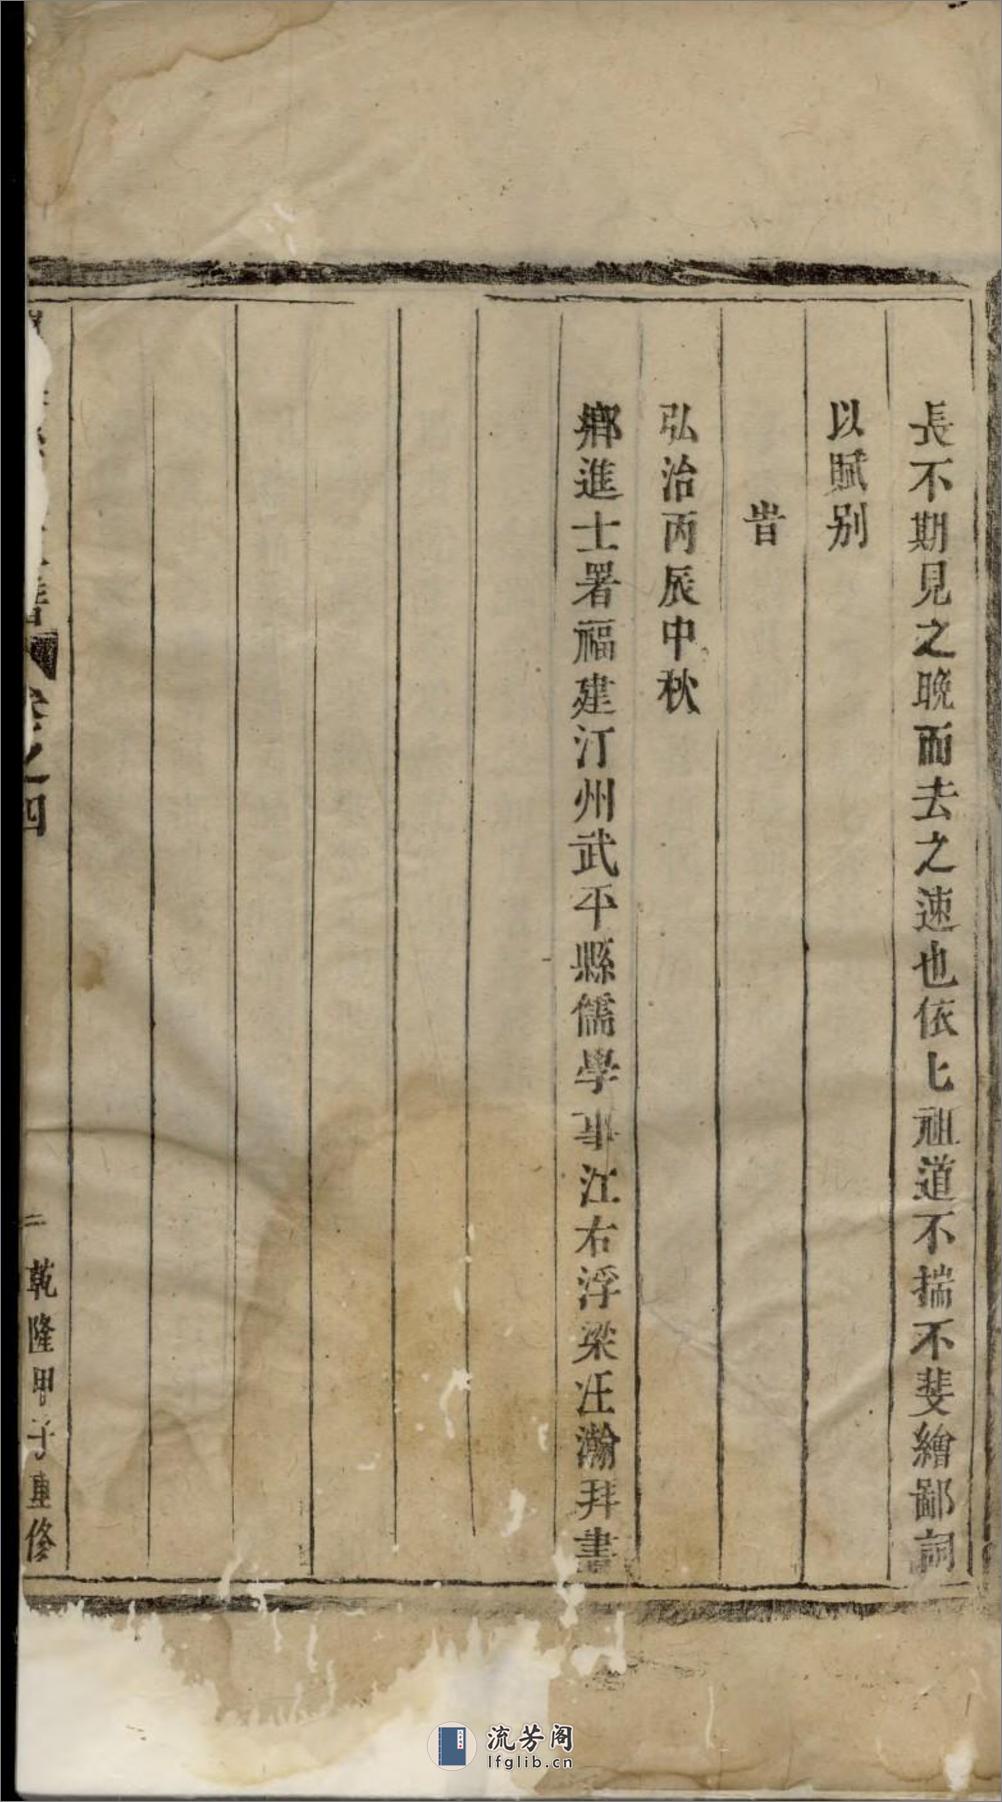 長不期見之晩而去之速也依匕祖道不揣不斐繪鄙詞
以賦别
旹
弘治丙辰中秋
鄉進士署福建汀州武平縣儒學事江右浮梁汪瀚拜書
卷之四
二
乾隆甲子重修
流芳阁
lfglib.cn